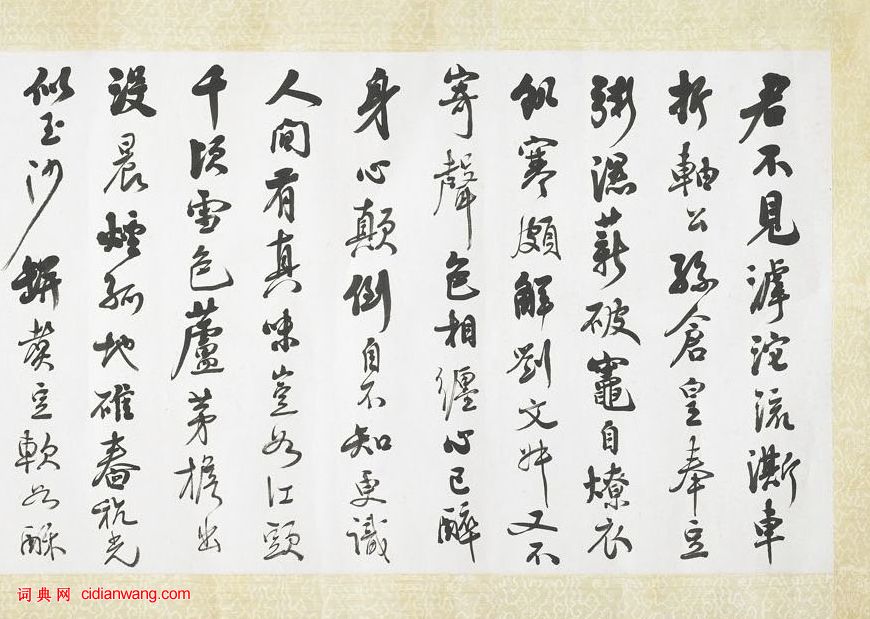 君不見滹沱流澌車
折軸公孫倉皇奉豆
粥濕薪破竈自燎衣
飢寒頗解劉文叔又不
寄聲色相纏心已醉
身心顛倒自不知更識
人間有真味豈如江頭
千頃雪色蘆茅檐出
沒晨煙孤地碓舂秔光
似玉沙缾煮豆軟如酥
词典网 cidianwang.com